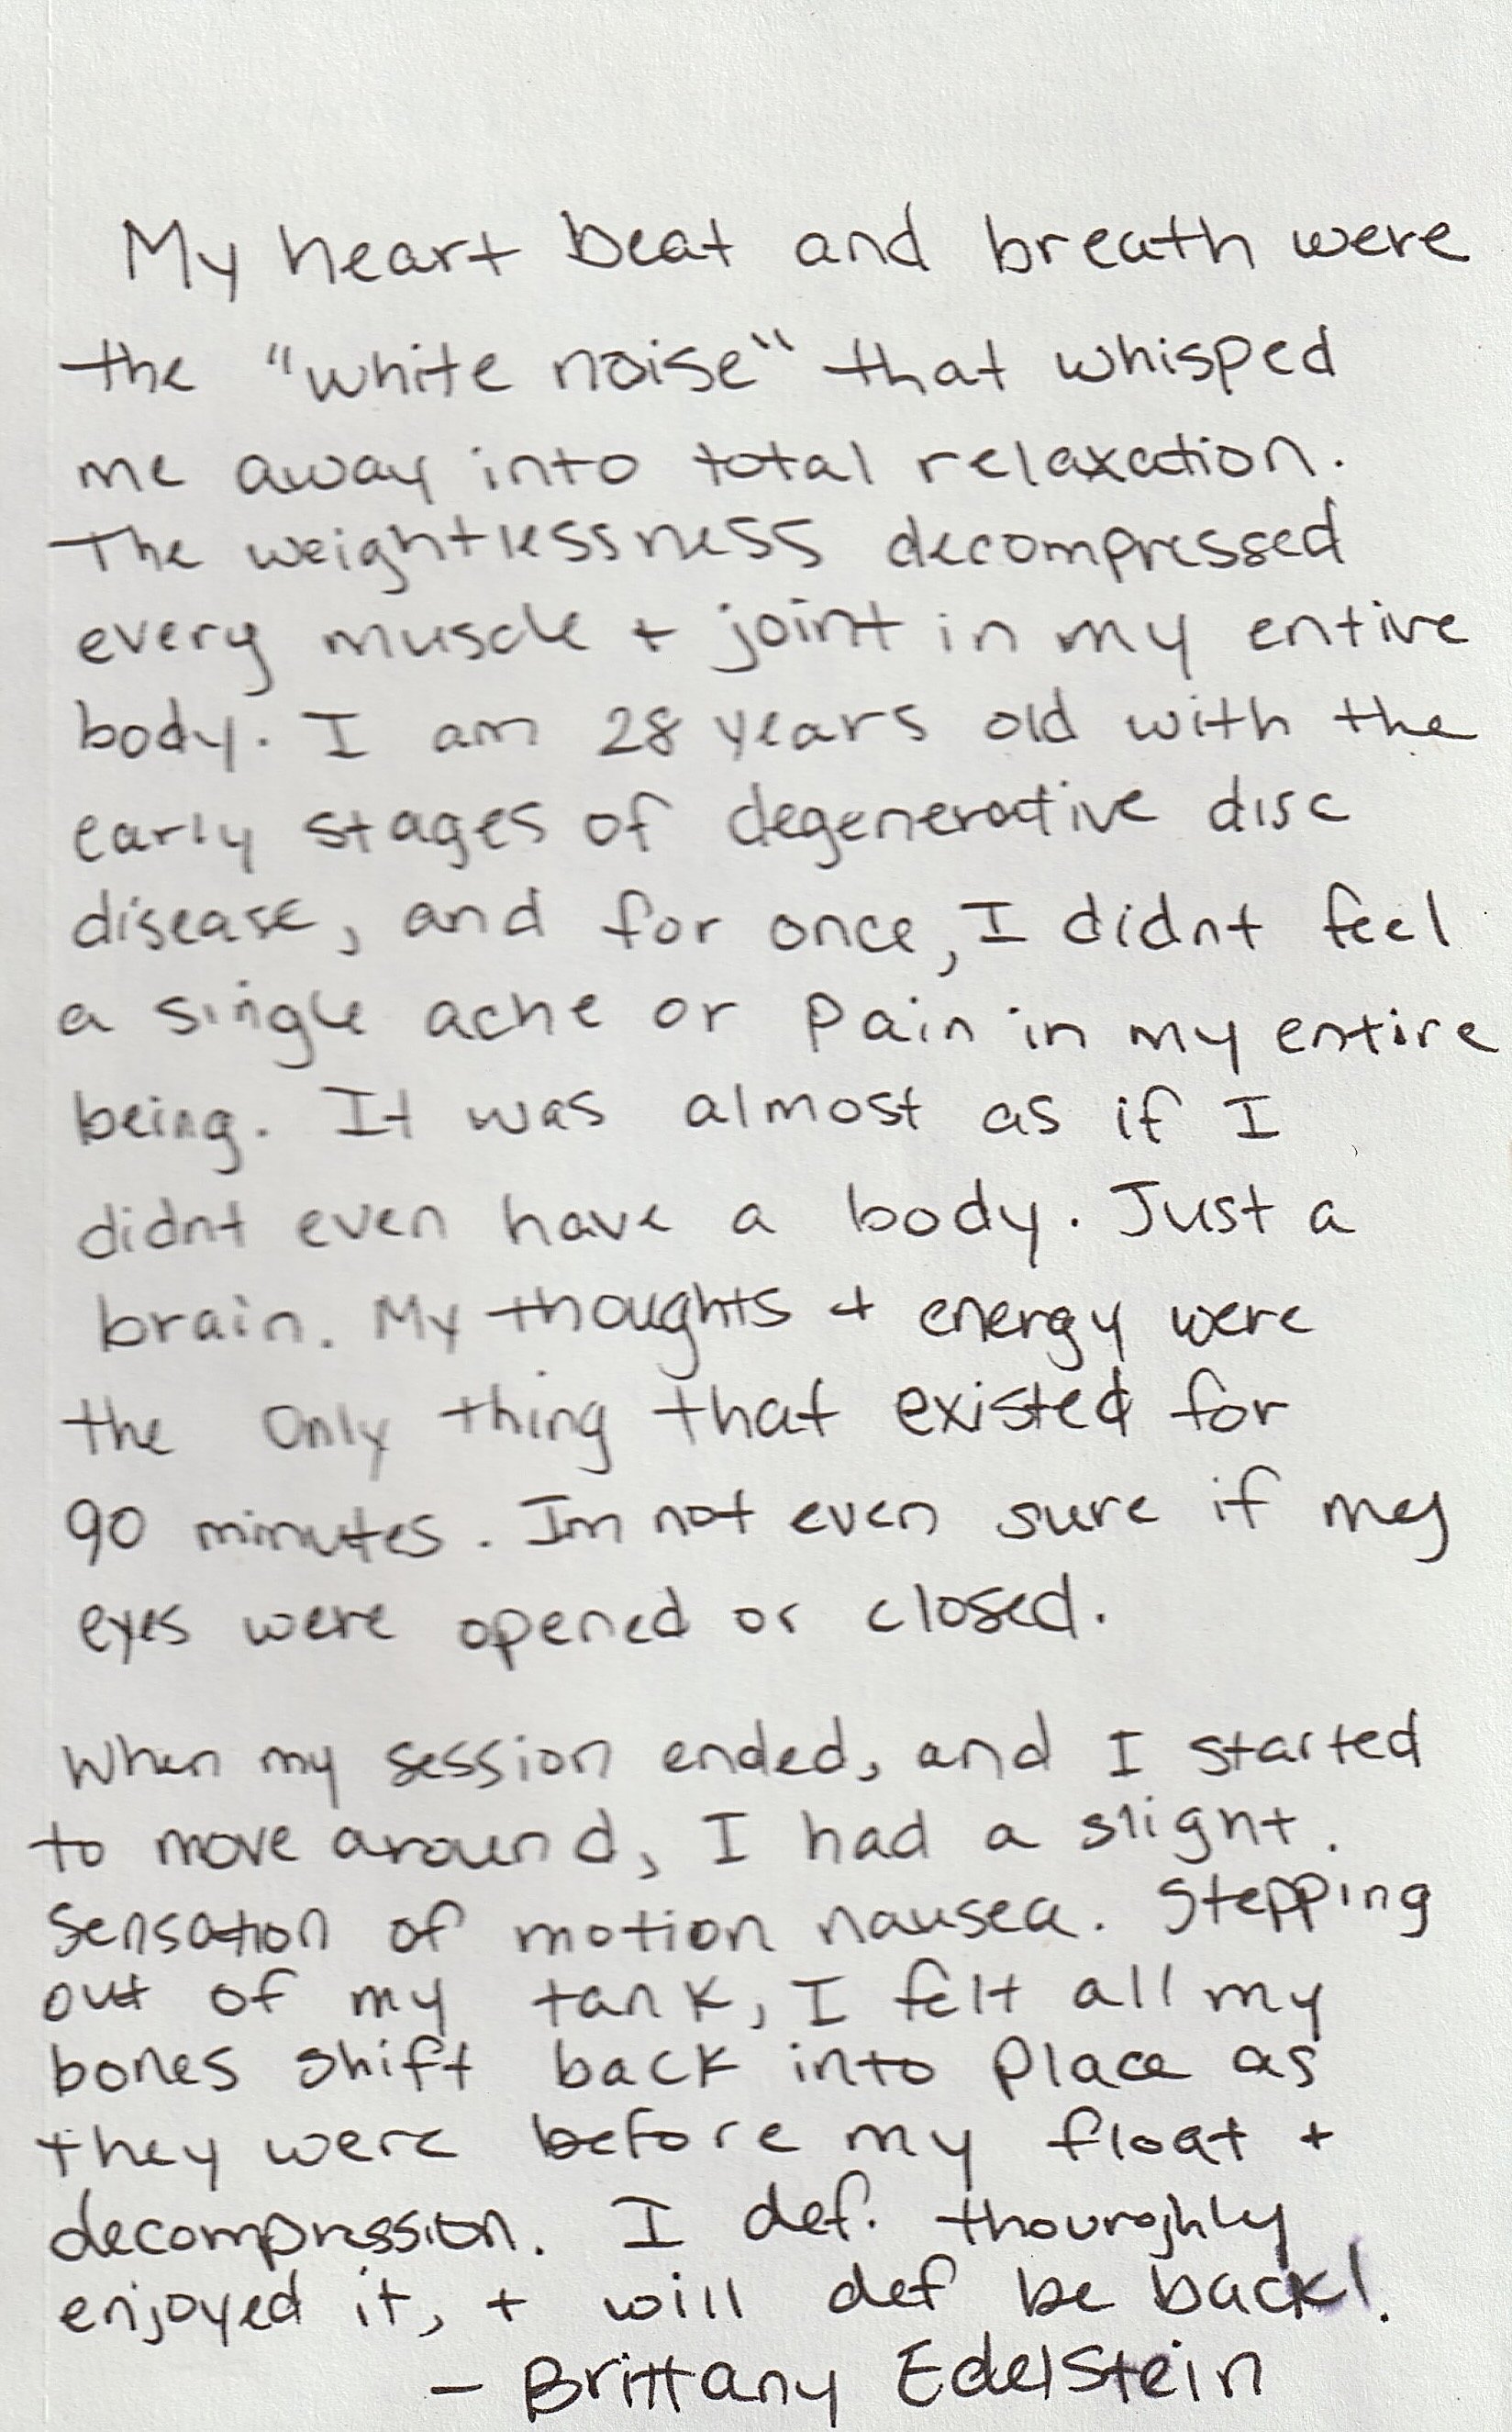 My heart beat and breath were
the "white noise" that whisped
me away into total relaxation.
The weightlessness decompressed
every muscle + joint in my entire
body. I am 28 years old with the
early stages of degenerative disc
disease, and for once, I didnt feel
a single ache or pain in my entire
being. It was almost as if I
didnt even have a body. Just a
brain. My thoughts + energy were
the only thing that existed for
90 minutes. Im not even sure if my
eyes were opened or closed.
When my session ended, and I started
to move around, I had a slight.
sensation of motion nausea. Stepping
out of my tank, I felt all my
bones shift back into place as
they were before my float +
decompression. I def. thouroghly
enjoyed it, + will def be back!.
- Brittany Edelstein